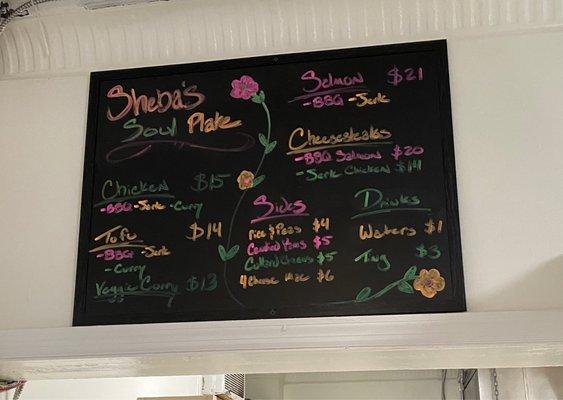 Sheba's
Soul Plate
Chicken $15
-BBQ -Jerk -Curry
Tofu $14
-BBQ -Jerk
-Curry
Veggie Curry $13
Sides
Rice & Peas $4
Candied Yams $5
Collard Greens $5
4 Cheese Mac $6
Salmon $21
-BBQ -Jerk
Cheesesteaks
-BBQ Salmon $20
-Jerk Chicken $14
Drinks
Waters $1
$3